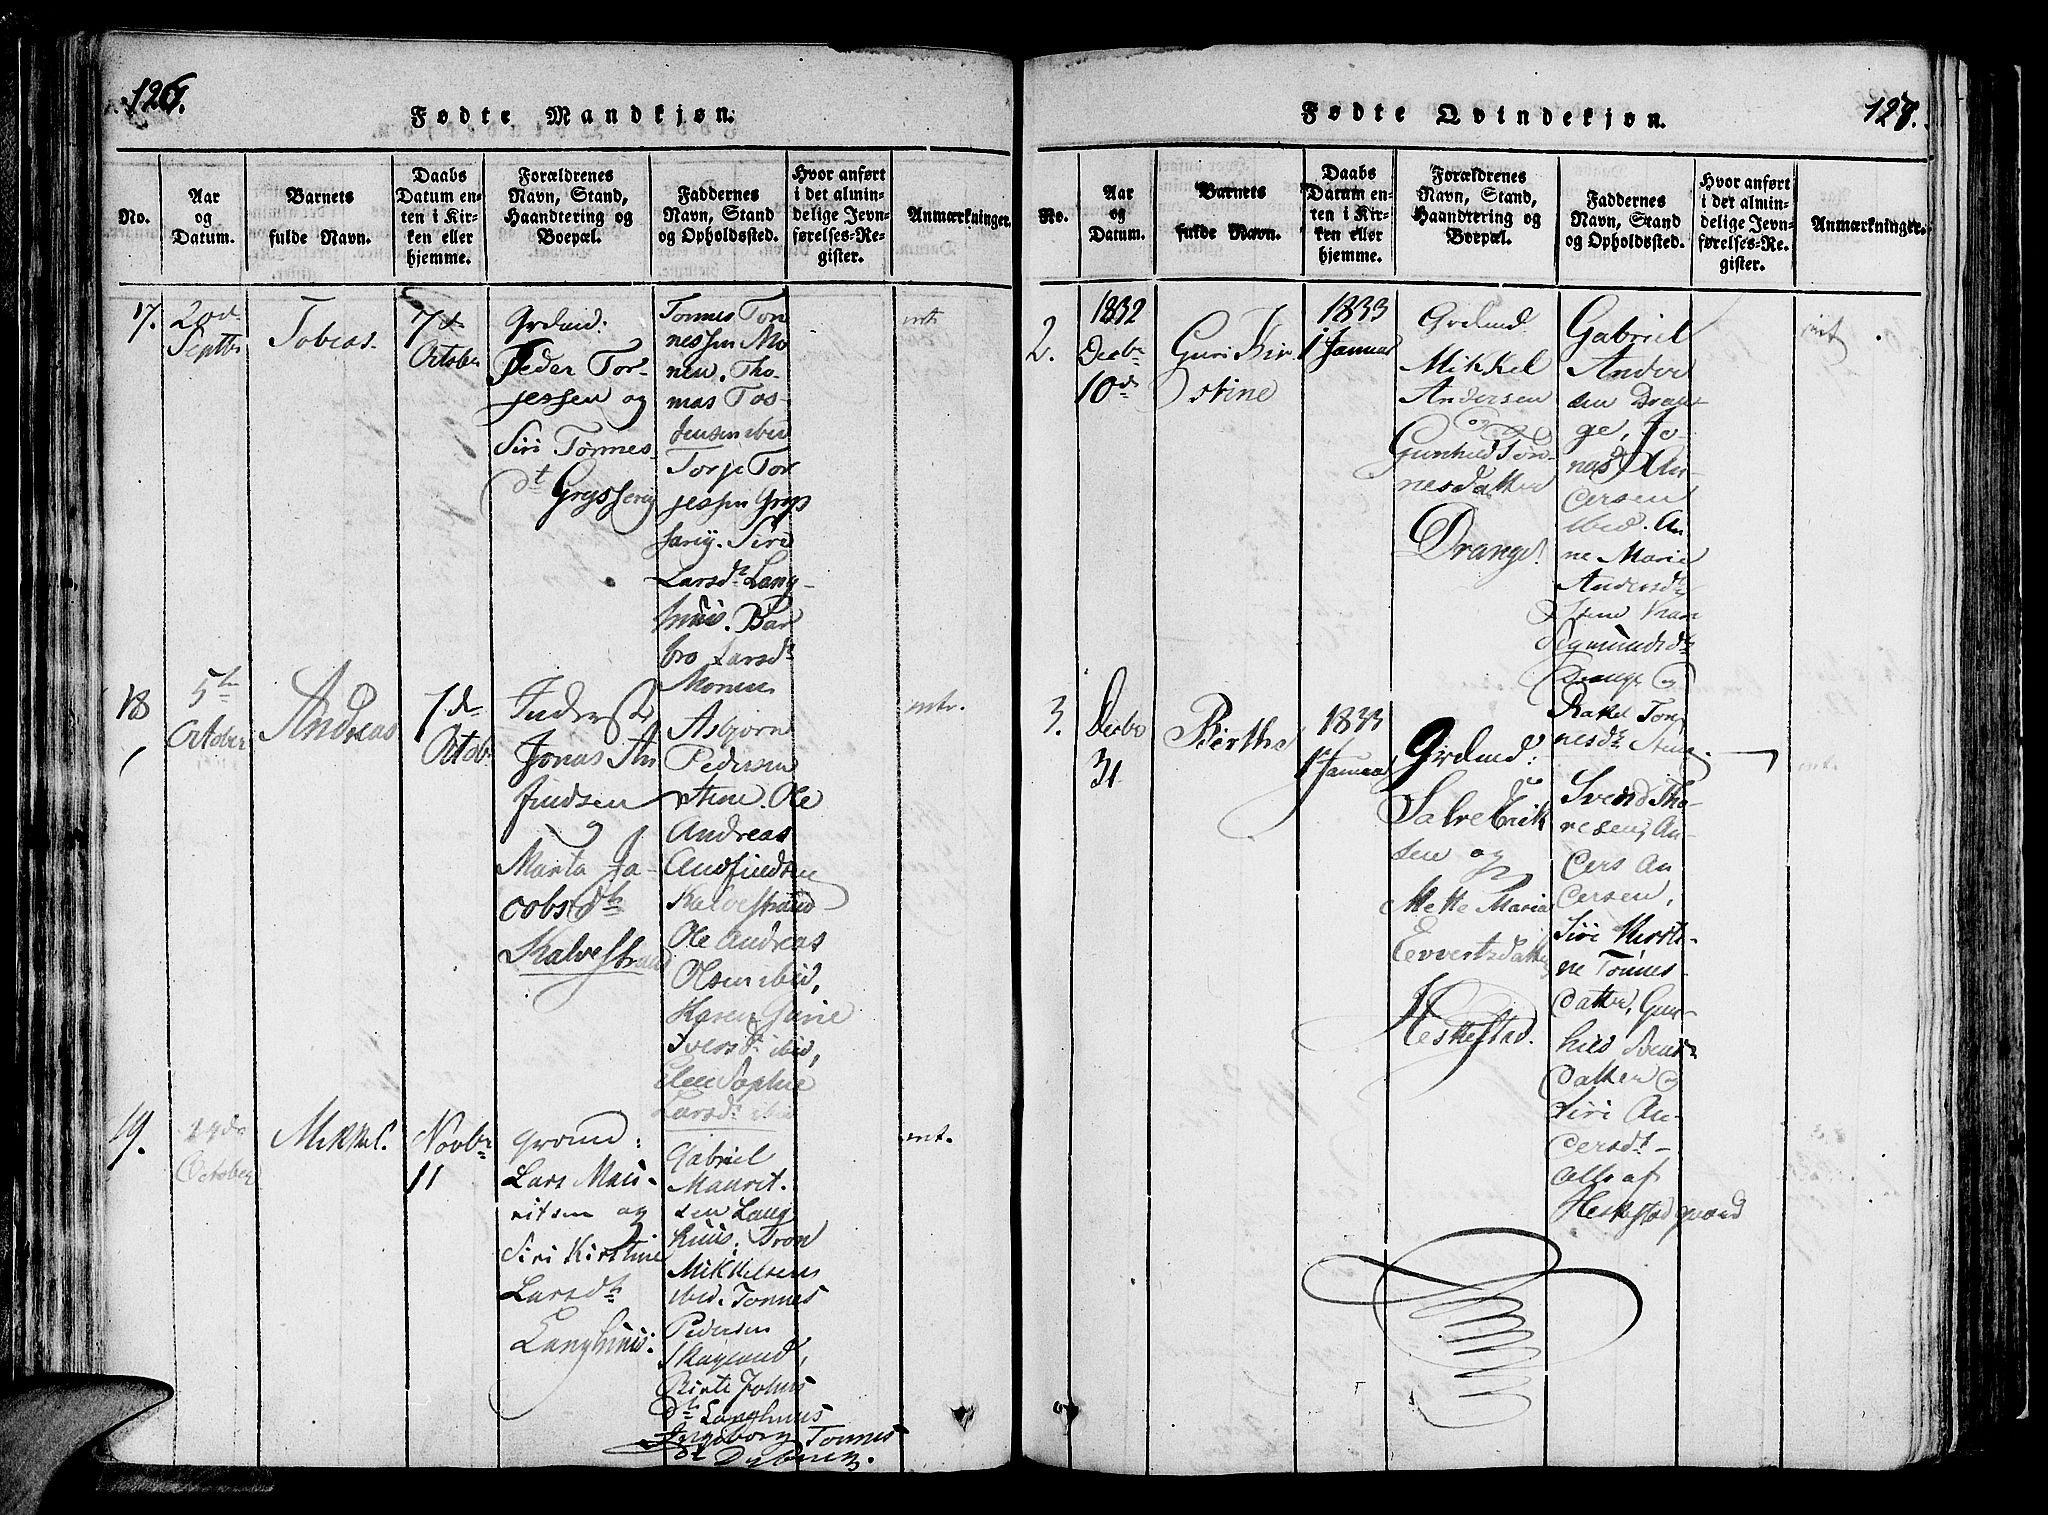 126.
Fødte Mandkjøn.
No.
Aar
og
Datum.
Barnets
fulde Navn.
Daabs
Datum en-
ten i Kir-
ken eller
hjemme.
Forældrenes
Navn, Stand,
Haandtering og
Boepæl.
Faddernes
Navn, Stand
og Opholdssted.
Hvor anført
i det almin-
delige Jevn-
førelses-Re-
gister.
Anmærkninger.
17.
20d
Septbr
Tobias.
7d
October
Grdmd:
Peder Tor-
jessen og
Siri Tønnes
dt Gryssery
Tonnes Ton
nessen Mo
nen. Tho-
mas Tos-
tensen ibid
Torje Tor
jessen Grys
sary. Siri
Larsdtr Lang-
huus. Bar
bro Larsdtr
Monen
mtr
18
5te
October
Andreas
7de
Octob.
Inderst,
Jonas An
findsen
og
Marta Ja-
cobsdtr
Kalvestrand
Asbjørn
Pedersen
Stene. Ole
Andreas
Andfindsen
Kalvestrand
Ole Andreas
Olsen ibid,
Karen Gurie
Iversdtr ibid,
Elen Sophie
Larsdtr ibid
mtr.
19.
14de
October
Mikkel.
Novbr
11
Grdmd:
Lars Mau-
ritsen og
Siri Kirstine
Larsdtr
Langhuus.
Gabriel
Maurit-
sen Lang
huus, Tron
Mikkelsen
ibid. Tonnes
Pedersen
Skageland,
Birte Johns
dtr Langhuus
Ingeborg Tonnes
dt Dybing.
mt.
127.
Fødte Qvindekjøn.
No.
Aar
og
Datum.
Barnets
fulde Navn.
Daabs
Datum en-
ten i Kir-
ken eller
hjemme.
Forældrenes
Navn, Stand,
Haandtering og
Boepæl.
Faddernes
Navn, Stand
og Opholdssted.
Hvor anført
i det almin-
delige Jevn-
førelses-Re-
gister.
Anmærkninger.
2.
1832
Decbr
10de
Guri Kir-
stine
1833
1 Januar
Grdmd
Mikkel
Andersen
og
Gunhild Tøn-
nesdatter
Drange.
Gabriel
Ander
sen Dran
ge, Jo-
nas An-
dersen
ibid. An
ne Marie
Andersdtr
Stene Karn
Sigmundsdtr
Drange og
Rakel Ton
nesdtr Stene.
mt
3.
Decbr
31
Birthe
1833
1 Januar
Grdmd:
Salve Erik
sen og
Mette Maria
Evvertsdatter
Heskestad.
Svend Tho-
resen, An-
ders An
dersen,
Siri Kirsti-
ne Tønnes-
datter, Gun-
hild Svends
datter og
Siri An-
dersdt-
Alle af
Heskestad gaard
mt.